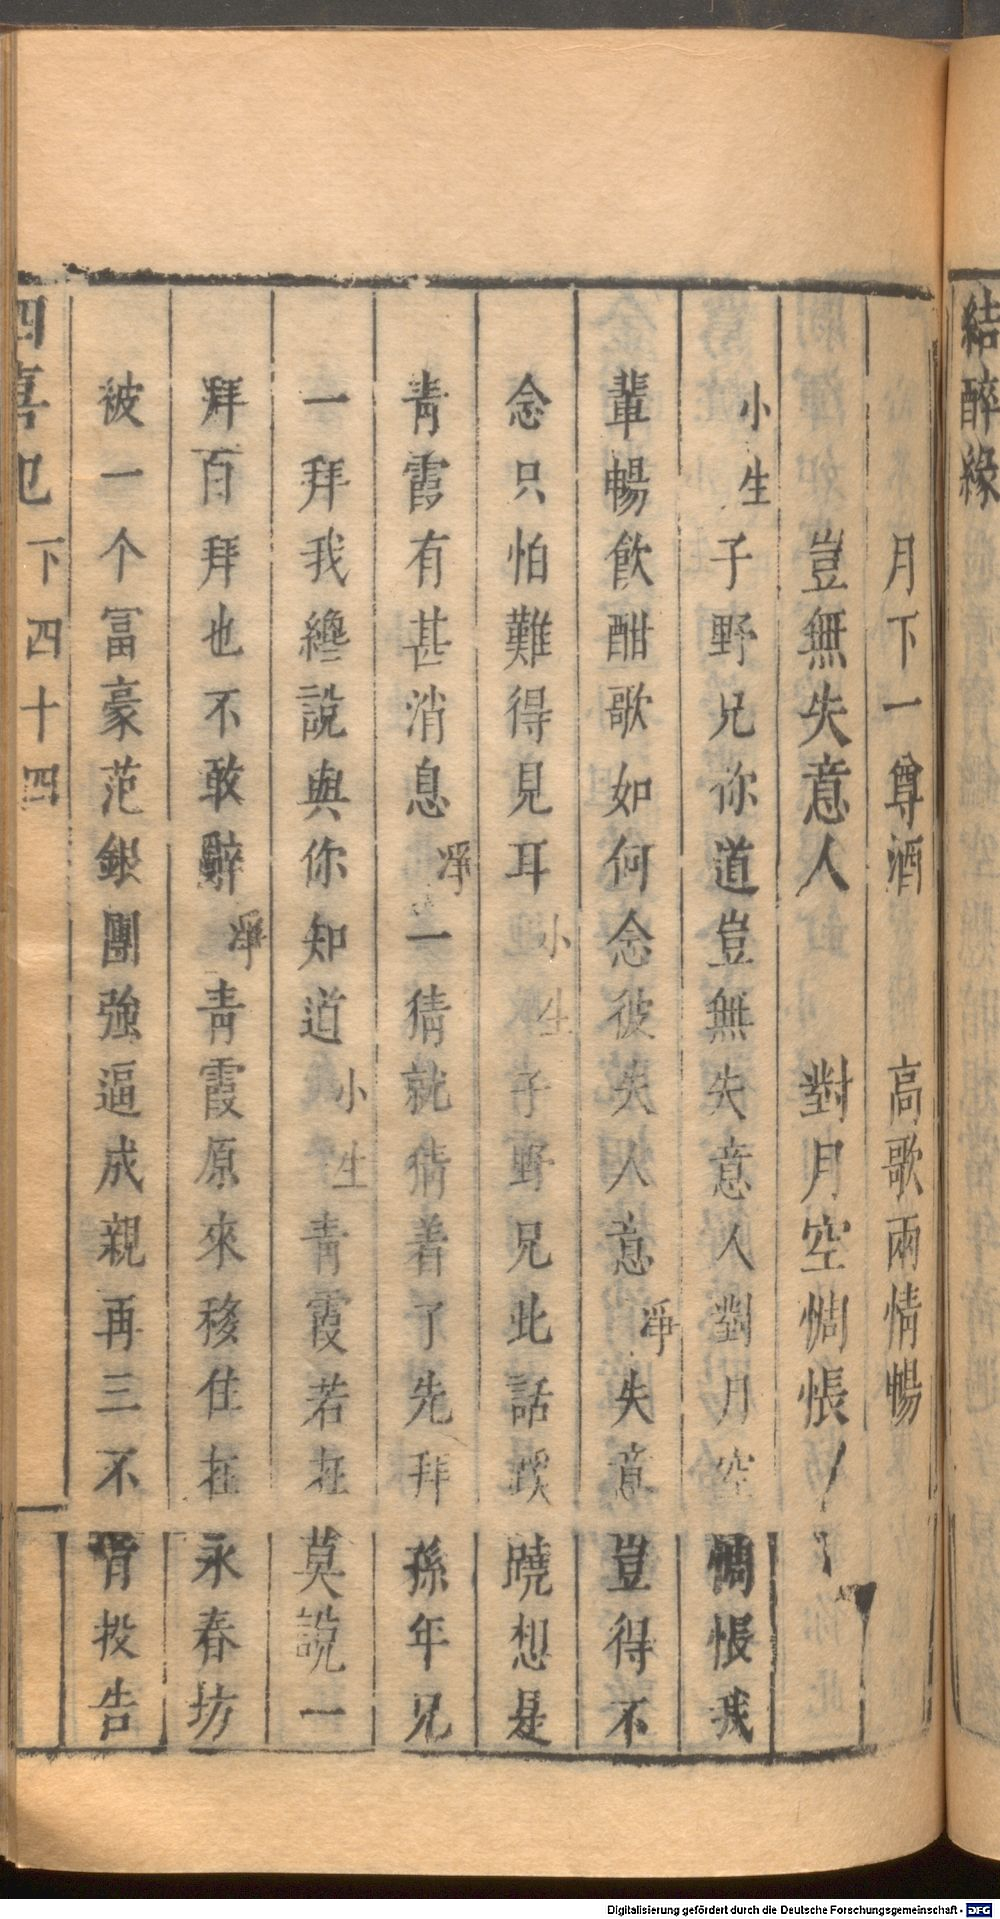 結醉緣
月下一尊酒　高歌兩情暢
豈無失意人　對月空惆悵
小生子野兄你道豈無失意人對月空惆悵我
輩暢飲酣歌如何念彼失人意淨失意豈得不
念只怕難得見耳小生子野兄此話蹊蹺想是
青霞有甚消息淨一猜就猜着了先拜孫年兄
一拜我纔說與你知道小生青霞若在莫說一
拜百拜也不敢辭淨青霞原來移住在永春坊
被一个冨豪范銀團強逼成親再三不肯投告
四喜也　下四十四
Digitalisierung gefördert durch die Deutsche Forschungsgemeinschaft - DFG